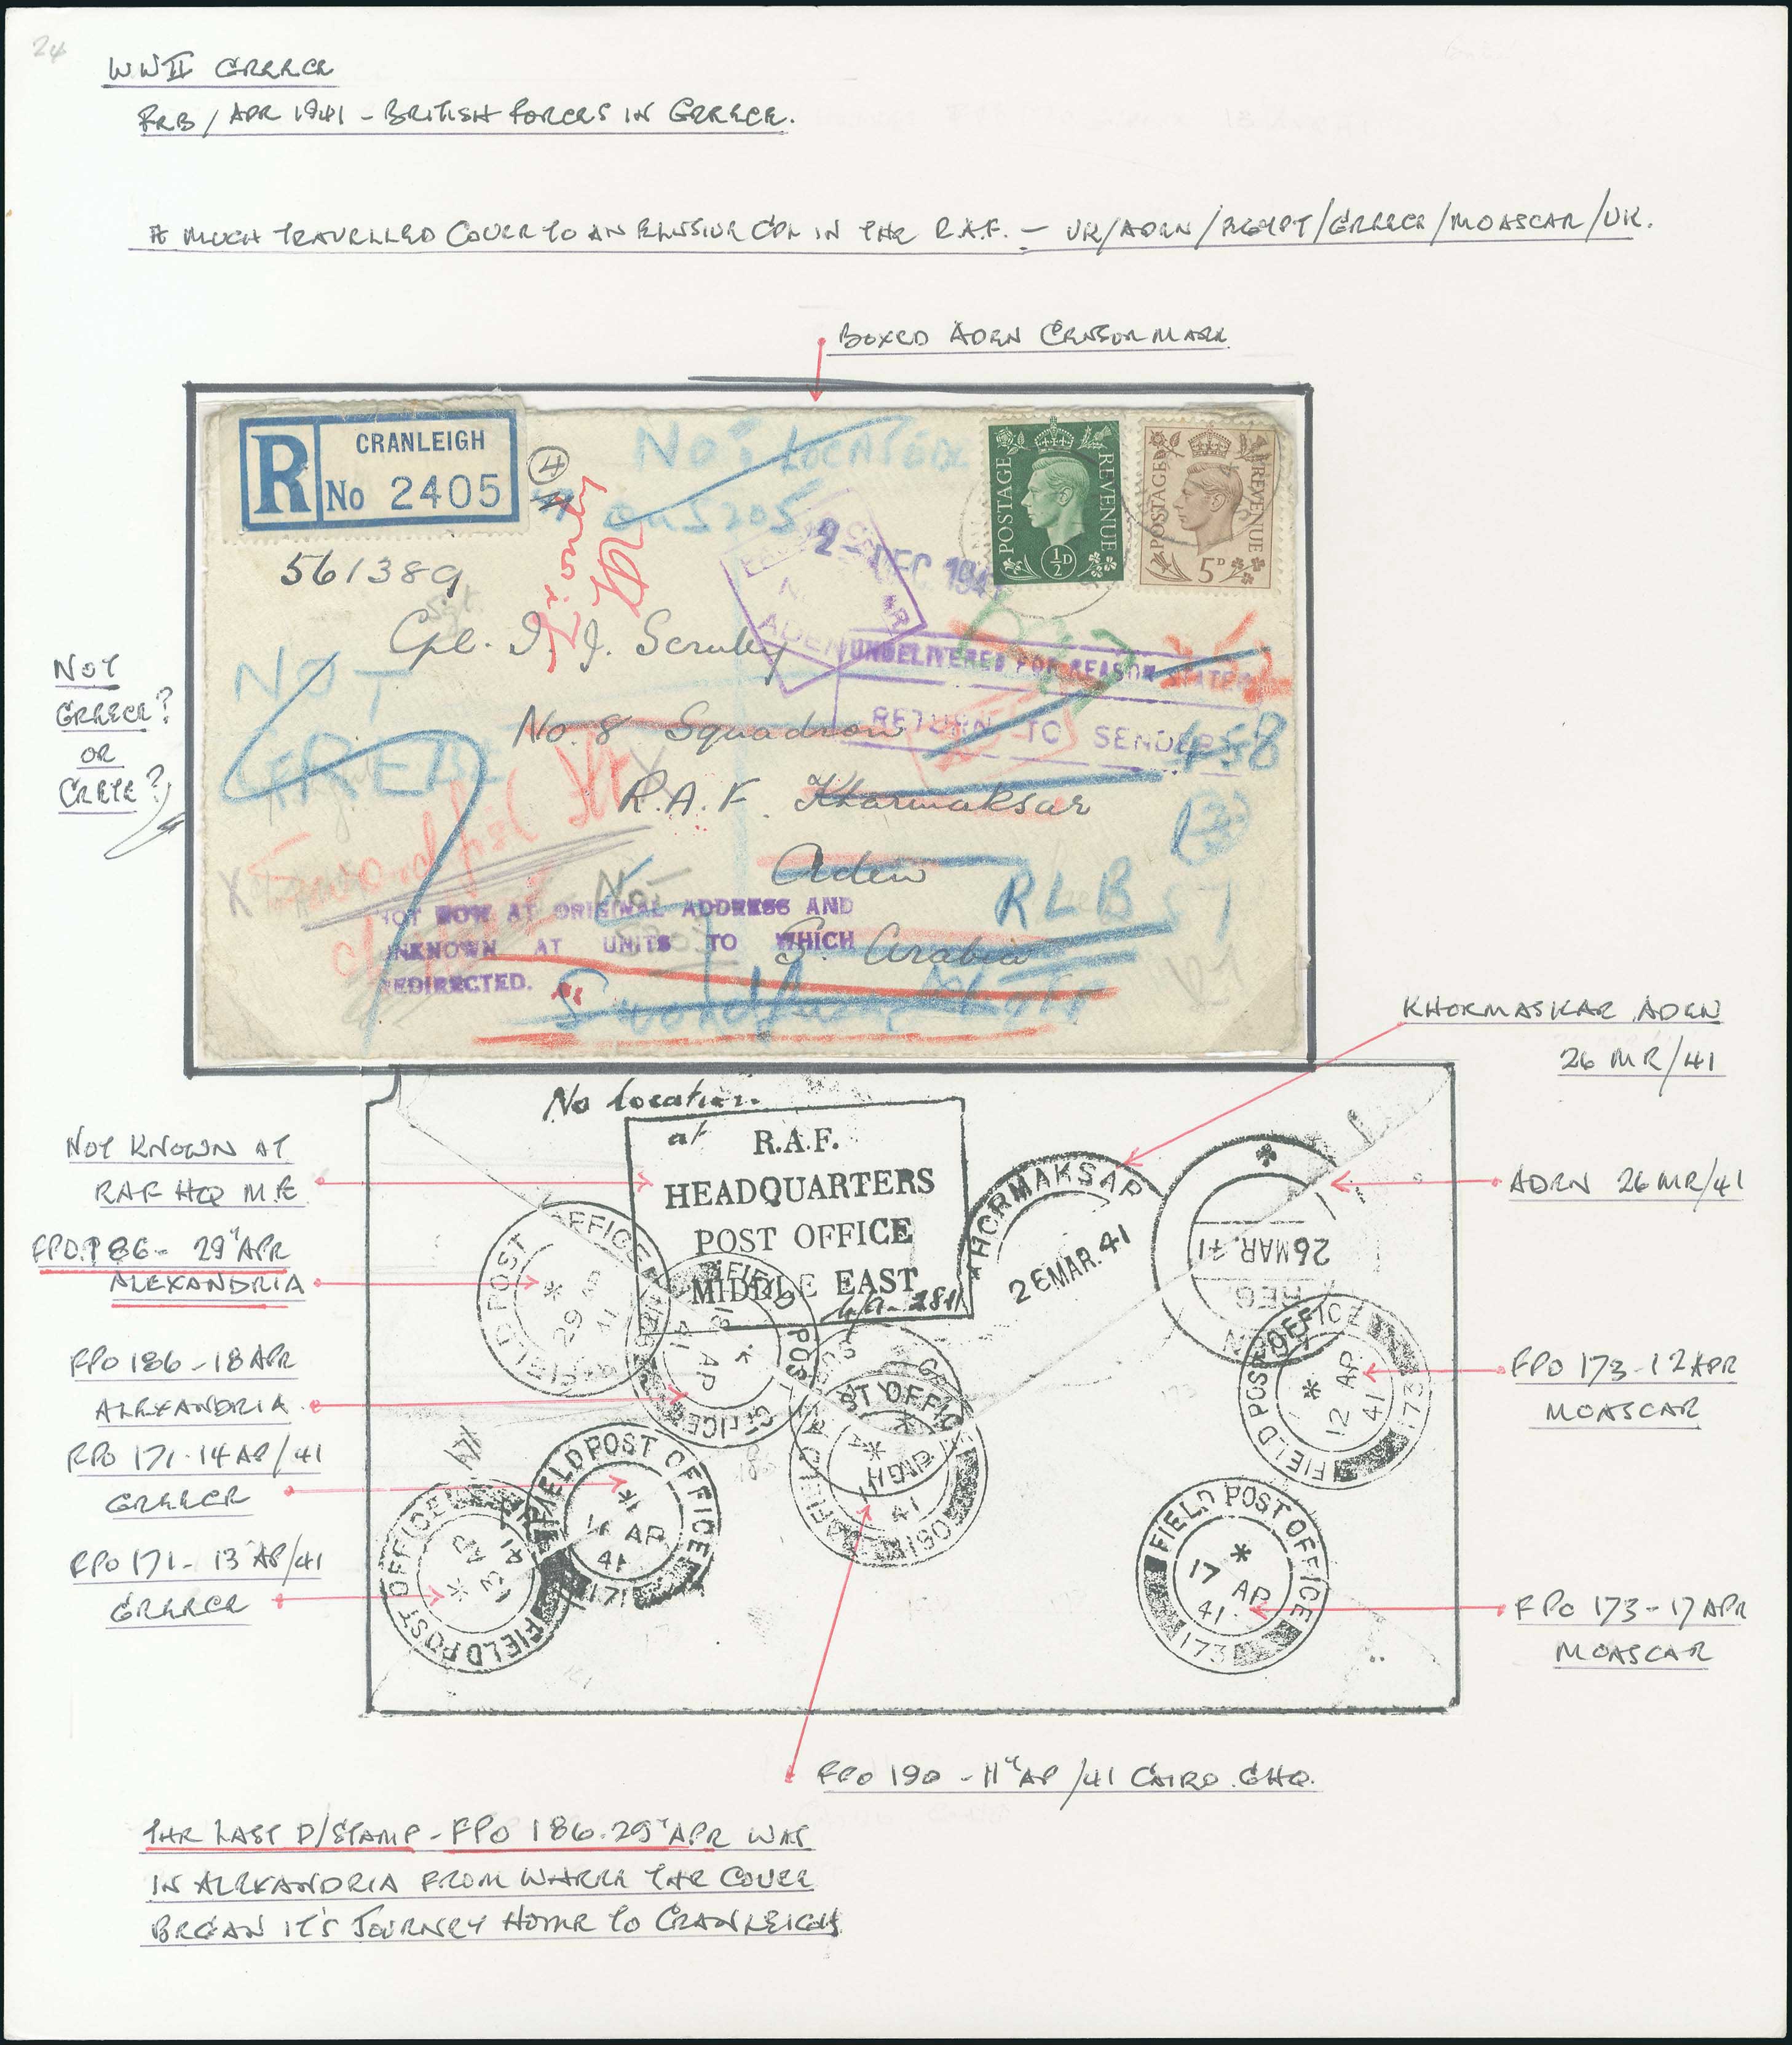 24
WWII GREECE
FEB / APR 1941 - BRITISH FORCES IN GREECE.
A MUCH TRAVELLED COVER TO AN ELUSIVE CPL IN THE R.A.F. - UK/ADEN/EGYPT/GREECE/MOASCAR/UK.
BOXED ADEN CENSOR MARK
R
CRANLEIGH
No 2405
4
NOT LOCATED
POSTAGE
REVENUE
½D
POSTAGE
REVENUE
5D
561389
2 - DEC 194
Sgt.
Cpl. I. J. Scruby
ADEN
UNDELIVERED FOR REASON STATED
RETURN TO SENDER
NOT
No. 8 Squadron
458
R.A.F. Kharmaksar
Aden
RLB
S. Arabia
NOT
GREECE?
OR
CRETE?
NOT NOW AT ORIGINAL ADDRESS AND
UNKNOWN AT UNITS TO WHICH
REDIRECTED.
KHORMASKAR ADEN
26 MR/41
No location
at R.A.F.
HEADQUARTERS
POST OFFICE
MIDDLE EAST
KHORMAKSAR
26 MAR. 41
26 MAR. 41
REG
NOT KNOWN AT
RAF HQ M.E.
ADEN 26 MR/41
FPO.186 - 29 APR
ALEXANDRIA
FIELD POST OFFICE
29 AP
41
FIELD POST OFFICE
18 AP
41
FPO 186 - 18 APR
ALEXANDRIA
FPO 173 - 12 APR
MOASCAR
FIELD POST OFFICE
12 AP
41
173
FPO 171 - 14 AP/41
GREECE
171
FIELD POST OFFICE
14 AP
41
171
FIELD POST OFFICE
41
190
FPO 171 - 13 AP/41
GREECE
FIELD POST OFFICE
13 AP
41
FIELD POST OFFICE
17 AP
41
173
FPO 173 - 17 APR
MOASCAR
FPO 190 - 11 AP/41 CAIRO. GHQ.
THE LAST D/STAMP - FPO 186. 29 APR WAS
IN ALEXANDRIA FROM WHERE THE COVER
BEGAN IT'S JOURNEY HOME TO CRANLEIGH